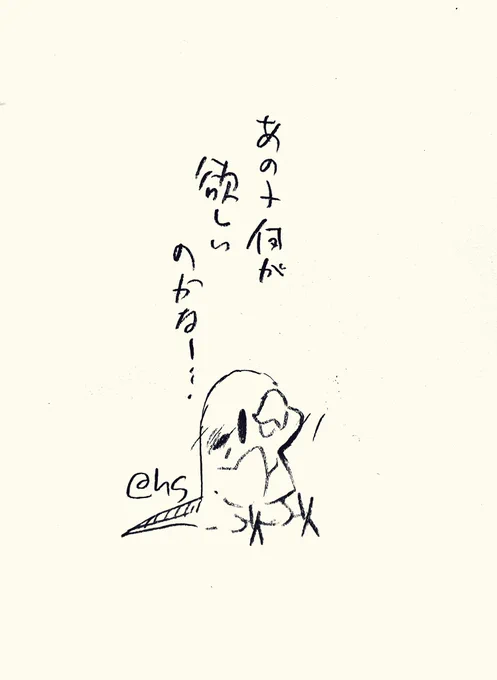 あの人何が
欲しい
のかなー…
@hs